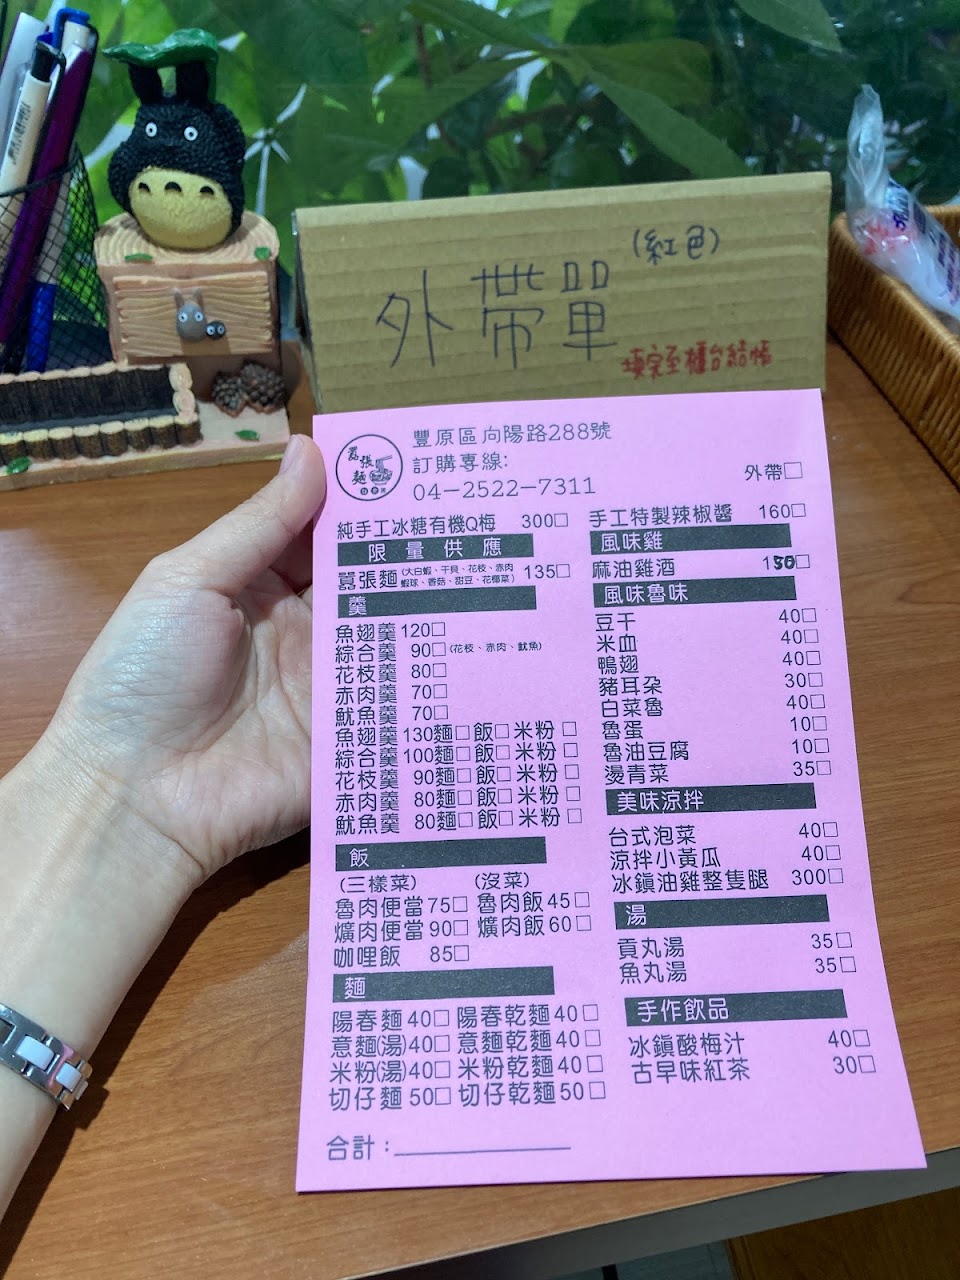 外帶單
(紅色)
填完至櫃台結帳
囂張麵
豐原區向陽路288號
訂購專線:
04-2522-7311
外帶□
純手工冰糖有機Q梅 300□
限量供應
囂張麵(大白蝦、干貝、花枝、赤肉蝦球、香菇、甜豆、花椰菜) 135□
羹
魚翅羹 120□
綜合羹 90□(花枝、赤肉、魷魚)
花枝羹 80□
赤肉羹 70□
魷魚羹 70□
魚翅羹 130麵□飯□米粉□
綜合羹 100麵□飯□米粉□
花枝羹 90麵□飯□米粉□
赤肉羹 80麵□飯□米粉□
魷魚羹 80麵□飯□米粉□
飯
(三樣菜) (沒菜)
魯肉便當75□ 魯肉飯45□
爌肉便當90□ 爌肉飯60□
咖哩飯 85□
麵
陽春麵40□ 陽春乾麵40□
意麵(湯)40□ 意麵乾麵40□
米粉(湯)40□ 米粉乾麵40□
切仔麵50□ 切仔乾麵50□
合計:
手工特製辣椒醬 160□
風味雞
麻油雞酒 150□
風味魯味
豆干 40□
米血 40□
鴨翅 40□
豬耳朵 30□
白菜魯 40□
魯蛋 10□
魯油豆腐 10□
燙青菜 35□
美味涼拌
台式泡菜 40□
涼拌小黃瓜 40□
冰鎮油雞整隻腿 300□
湯
貢丸湯 35□
魚丸湯 35□
手作飲品
冰鎮酸梅汁 40□
古早味紅茶 30□